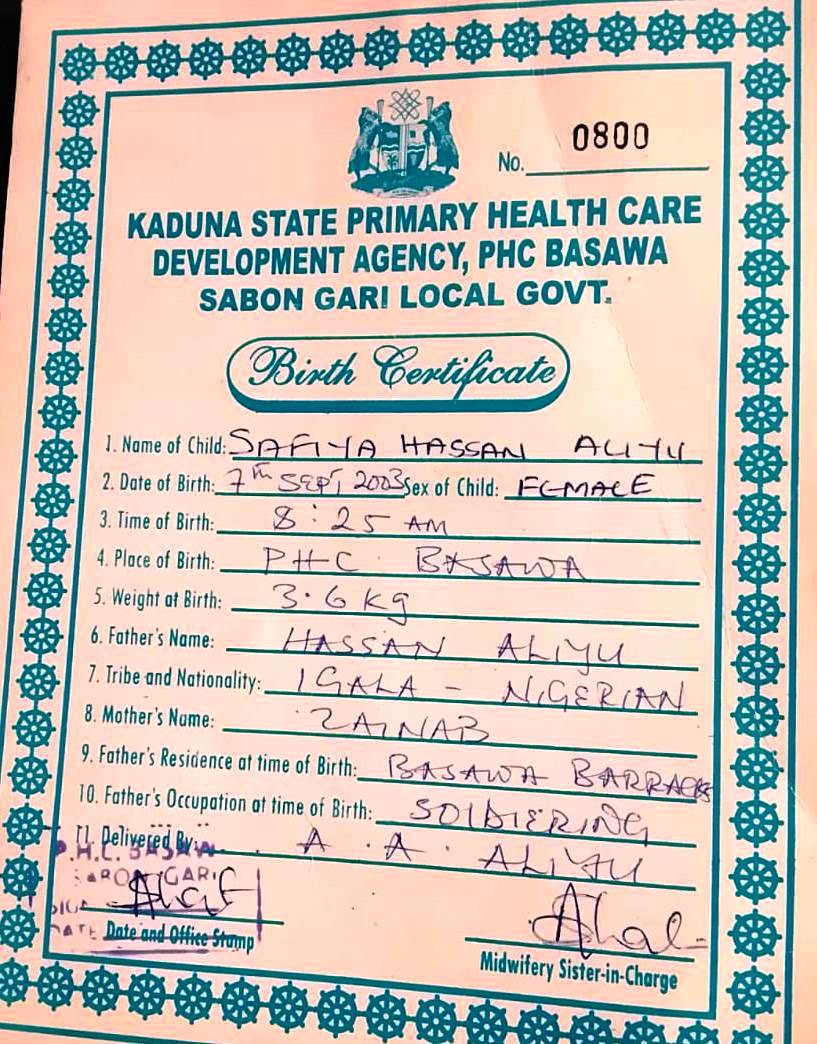 No. 0800
KADUNA STATE PRIMARY HEALTH CARE
DEVELOPMENT AGENCY, PHC BASAWA
SABON GARI LOCAL GOVT.
Birth Certificate
1. Name of Child: SAFIYA HASSAN ALIYU
2. Date of Birth: 7th SEPT, 2003 Sex of Child: FEMALE
3. Time of Birth: 8:25 AM
4. Place of Birth: PHC BASAWA
5. Weight at Birth: 3.6 kg
6. Father's Name: HASSAN ALIYU
7. Tribe and Nationality: IGALA - NIGERIAN
8. Mother's Name: ZAINAB
9. Father's Residence at time of Birth: BASAWA BARRACKS
10. Father's Occupation at time of Birth: SOLDIERING
11. Delivered By: A. A. ALIYU
P.H.C. BASAW
GARI
Date and Office Stamp
Midwifery Sister-in-Charge